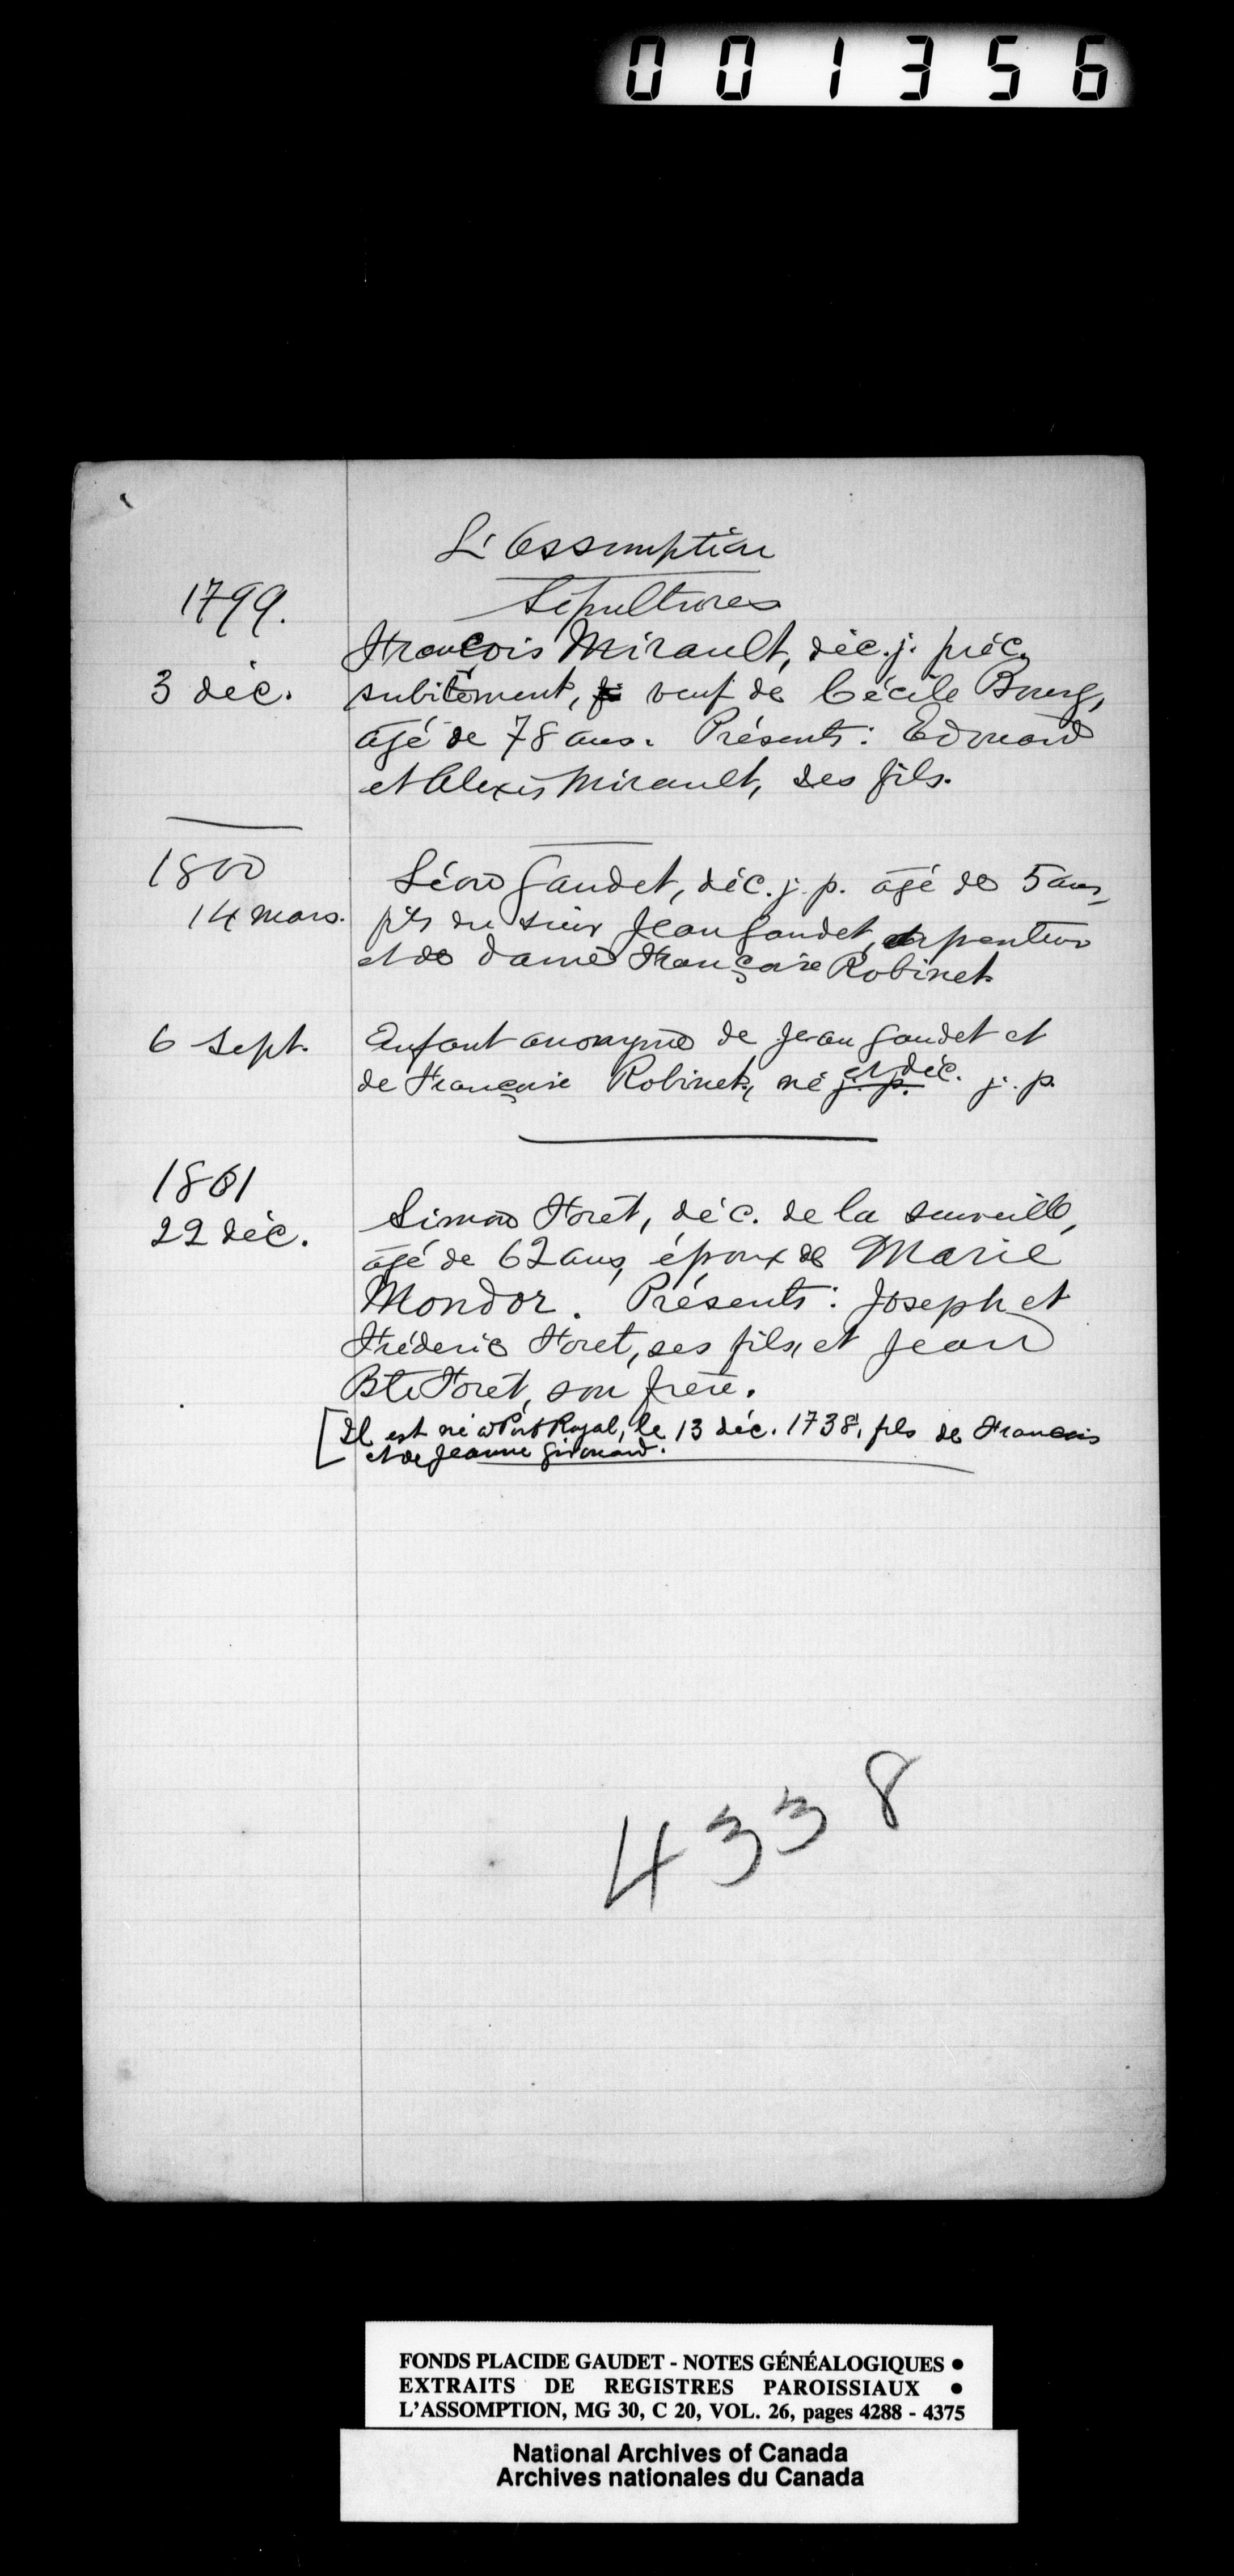 001356
L'Assomption
Sépultures
1799.
François Mirault, déc. j. préc.
3 déc.
subitement, veuf de Cécile Bourg,
âgé de 78 ans. Présents: Edouard
et Alexis Mirault, ses fils.
1800
Léon Gaudet, déc. j. p. âgé de 5 ans,
14 mars.
fils du sieur Jean Gaudet, arpenteur
et de dame Françoise Robinet.
6 sept.
Enfant anonyme de Jean Gaudet et
de Françoise Robinet, né j. p. et déc. j. p.
1801
22 déc.
Simon Foret, déc. de la surveille,
âgé de 62 ans, époux de Marie
Mondor. Présents: Joseph et
Fréderic Foret, ses fils, et Jean
Bte Foret, son frère.
[Il est né à Port Royal, le 13 déc. 1738, fils de Francois
et de Jeanne Girouard.
4338
FONDS PLACIDE GAUDET - NOTES GÉNÉALOGIQUES •
EXTRAITS DE REGISTRES PAROISSIAUX •
L'ASSOMPTION, MG 30, C 20, VOL. 26, pages 4288 - 4375
National Archives of Canada
Archives nationales du Canada